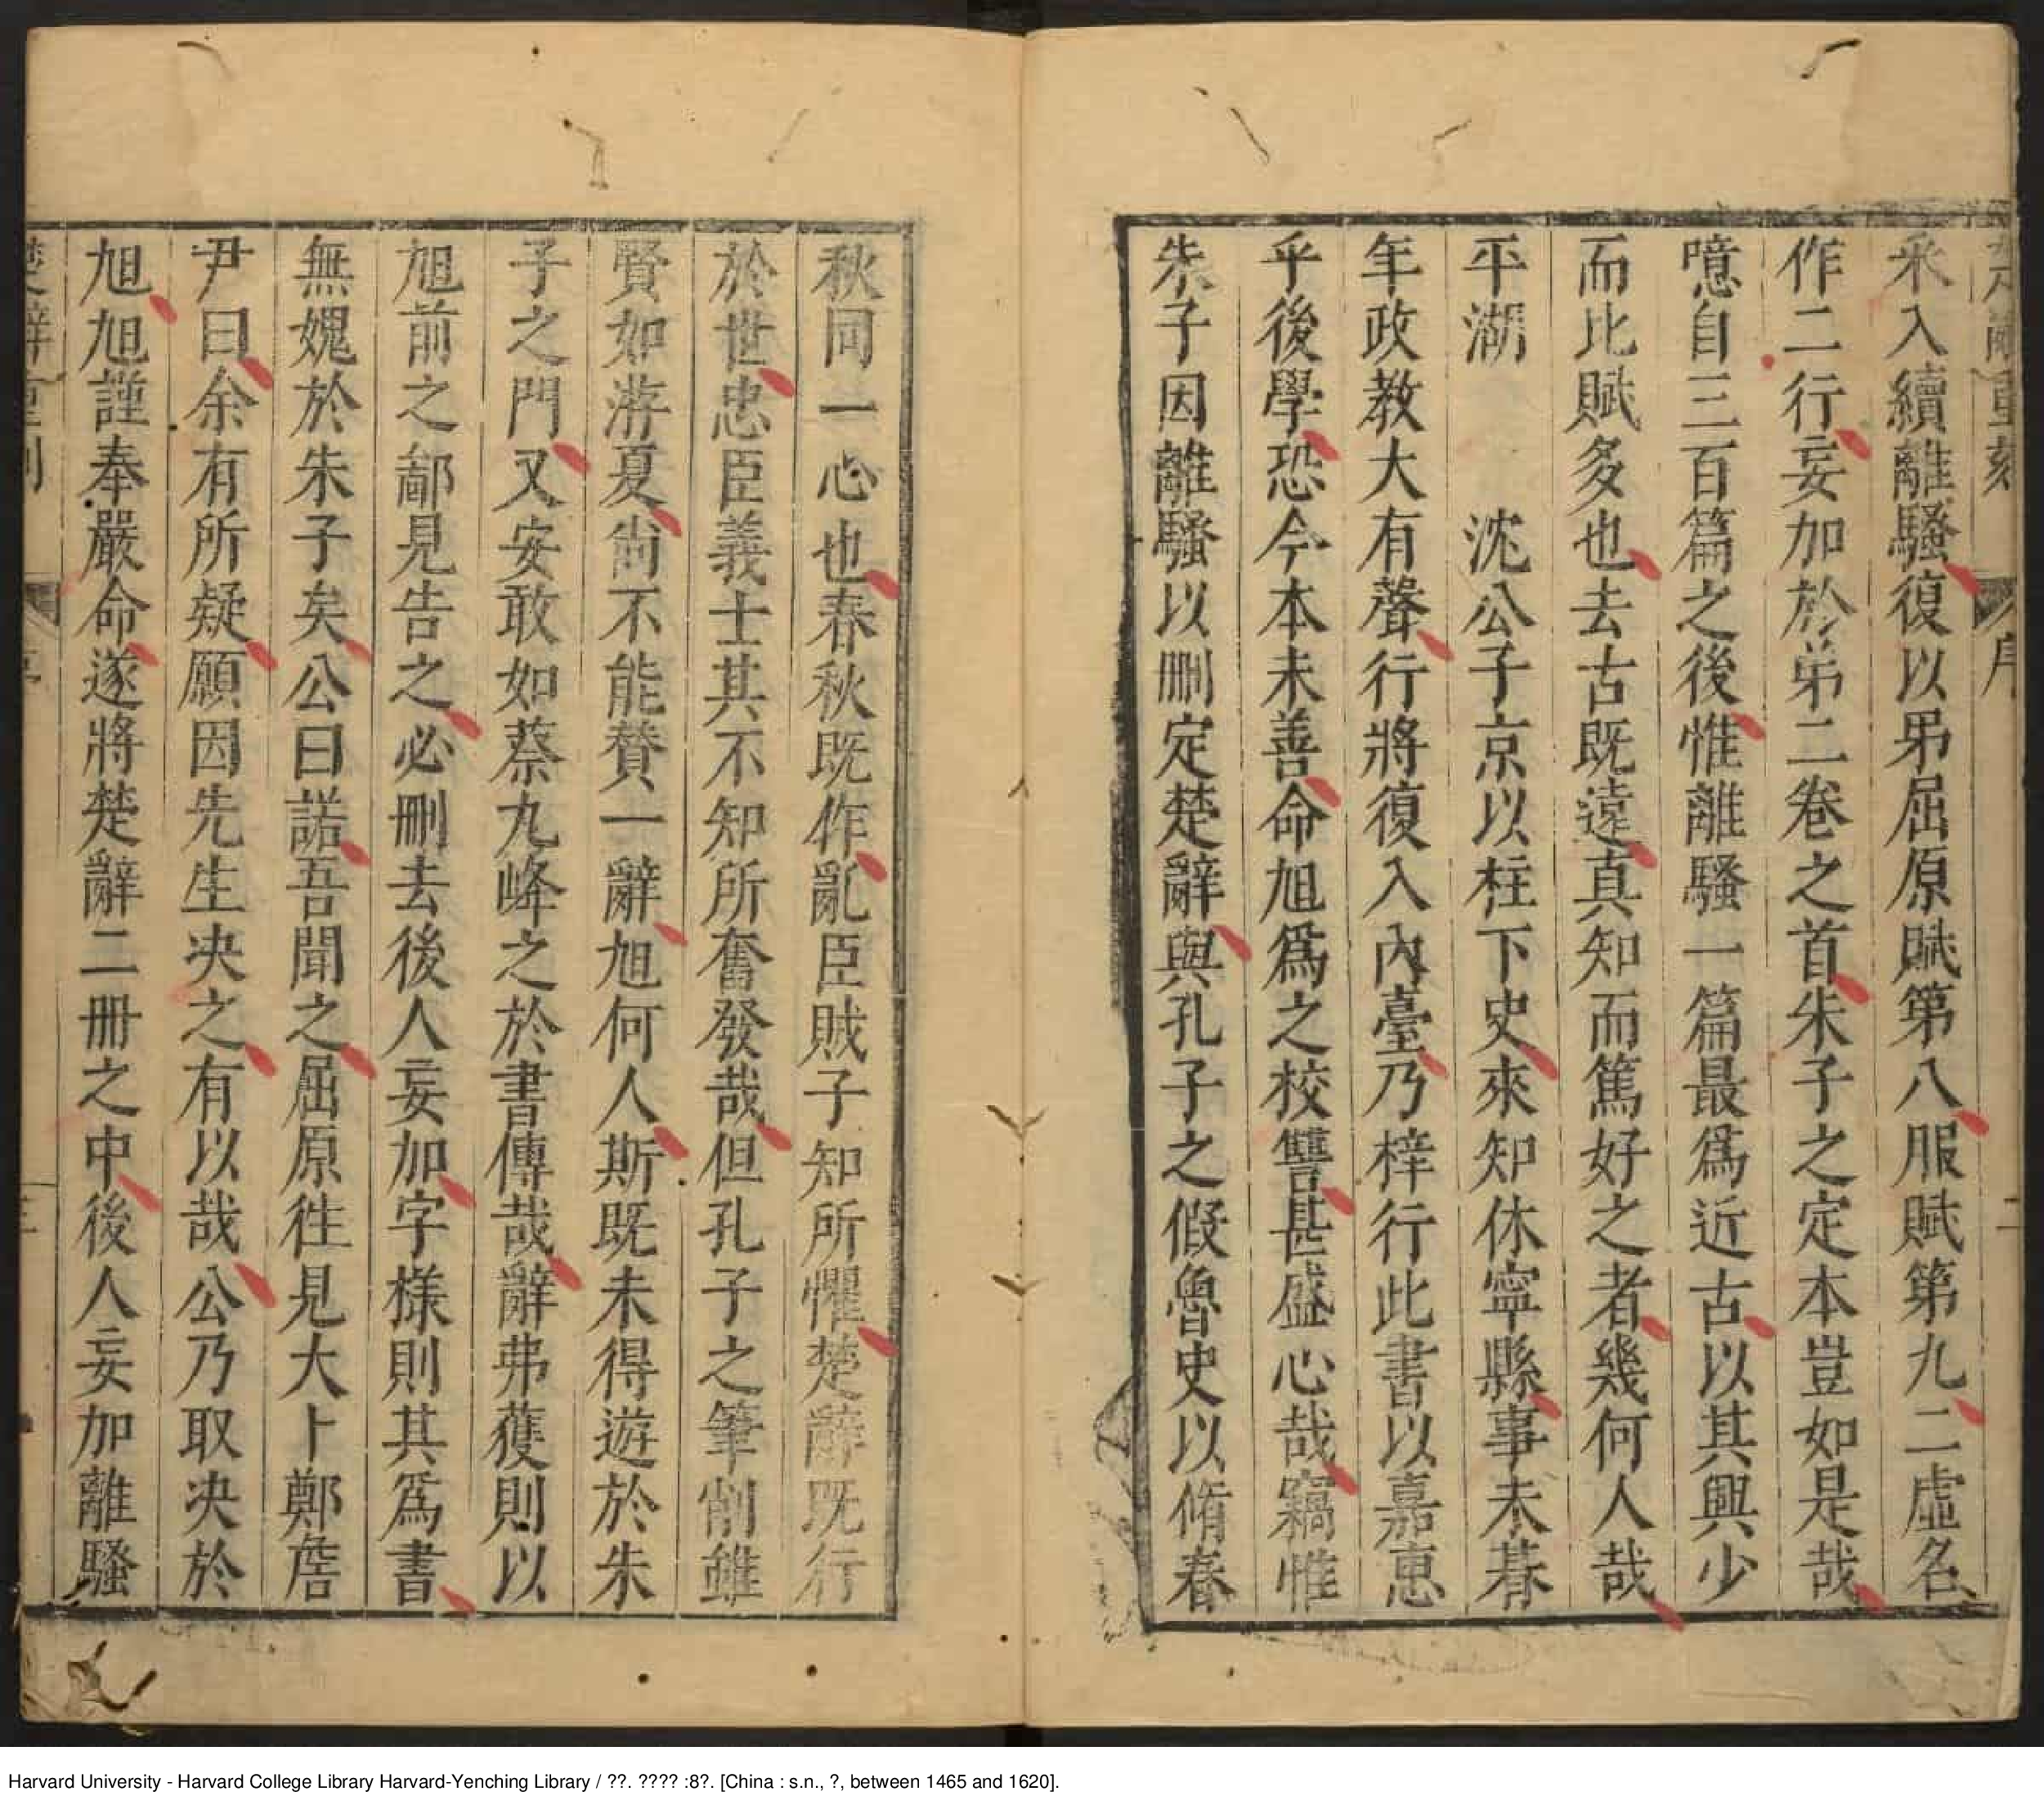 采入續離騷復以弟屈原賦第八服賦第九二虛名
作二行妄加於弟二卷之首朱子之定本豈如是哉
噫自三百篇之後惟離騷一篇最爲近古以其興少
而比賦多也去古既遠真知而篤好之者幾何人哉
平湖沈公子京以柱下史來知休寧縣事未朞
年政教大有聲行將復入內臺乃梓行此書以嘉惠
乎後學恐今本未善命旭爲之校讐甚盛心哉竊惟
朱子因離騷以刪定楚辭與孔子之假魯史以脩春
秋同一心也春秋既作亂臣賊子知所懼楚辭既行
於世忠臣義士其不知所奮發哉但孔子之筆削雖
賢如游夏尚不能賛一辭旭何人斯既未得遊於朱
子之門又安敢如蔡九峰之於書傳哉辭弗獲則以
旭前之鄙見告之必刪去後人妄加字樣則其爲書
無媿於朱子矣公曰諾吾聞之屈原徃見大卜鄭詹
尹曰余有所疑願因先生决之有以哉公乃取决於
旭旭謹奉嚴命遂將楚辭二冊之中後人妄加離騷
Harvard University - Harvard College Library Harvard-Yenching Library / ??. ???? :8?. [China : s.n., ?, between 1465 and 1620].